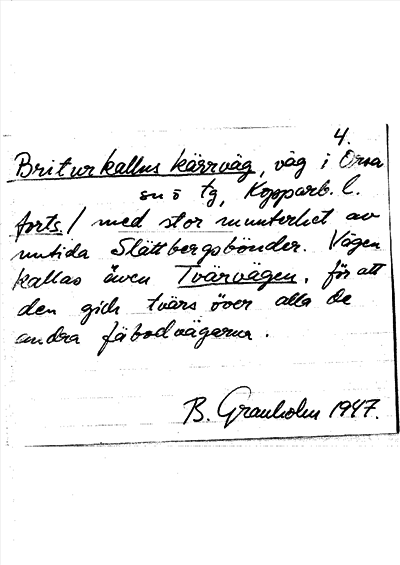 4.
Briturkallus kärrväg, väg i Orsa
sn ö tg, Kopparb. l.
forts./ med stor munterhet av
nutida Slättbergsbönder. Vägen
kallas även Tvärvägen, för att
den gick tvärs över alla de
andra fäbodvägarna.
B. Granholm 1947.